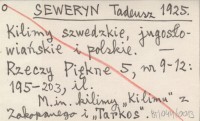 o SEWERYN Tadeusz 1925.
Kilimy szwedzkie, jugosło-
wiańskie i polskie. —
Rzeczy Piękne 5, nr 9-12:
195-203, il.
M.in. kilimy „Kilimu" z
Zakopanego i „Tarkos".